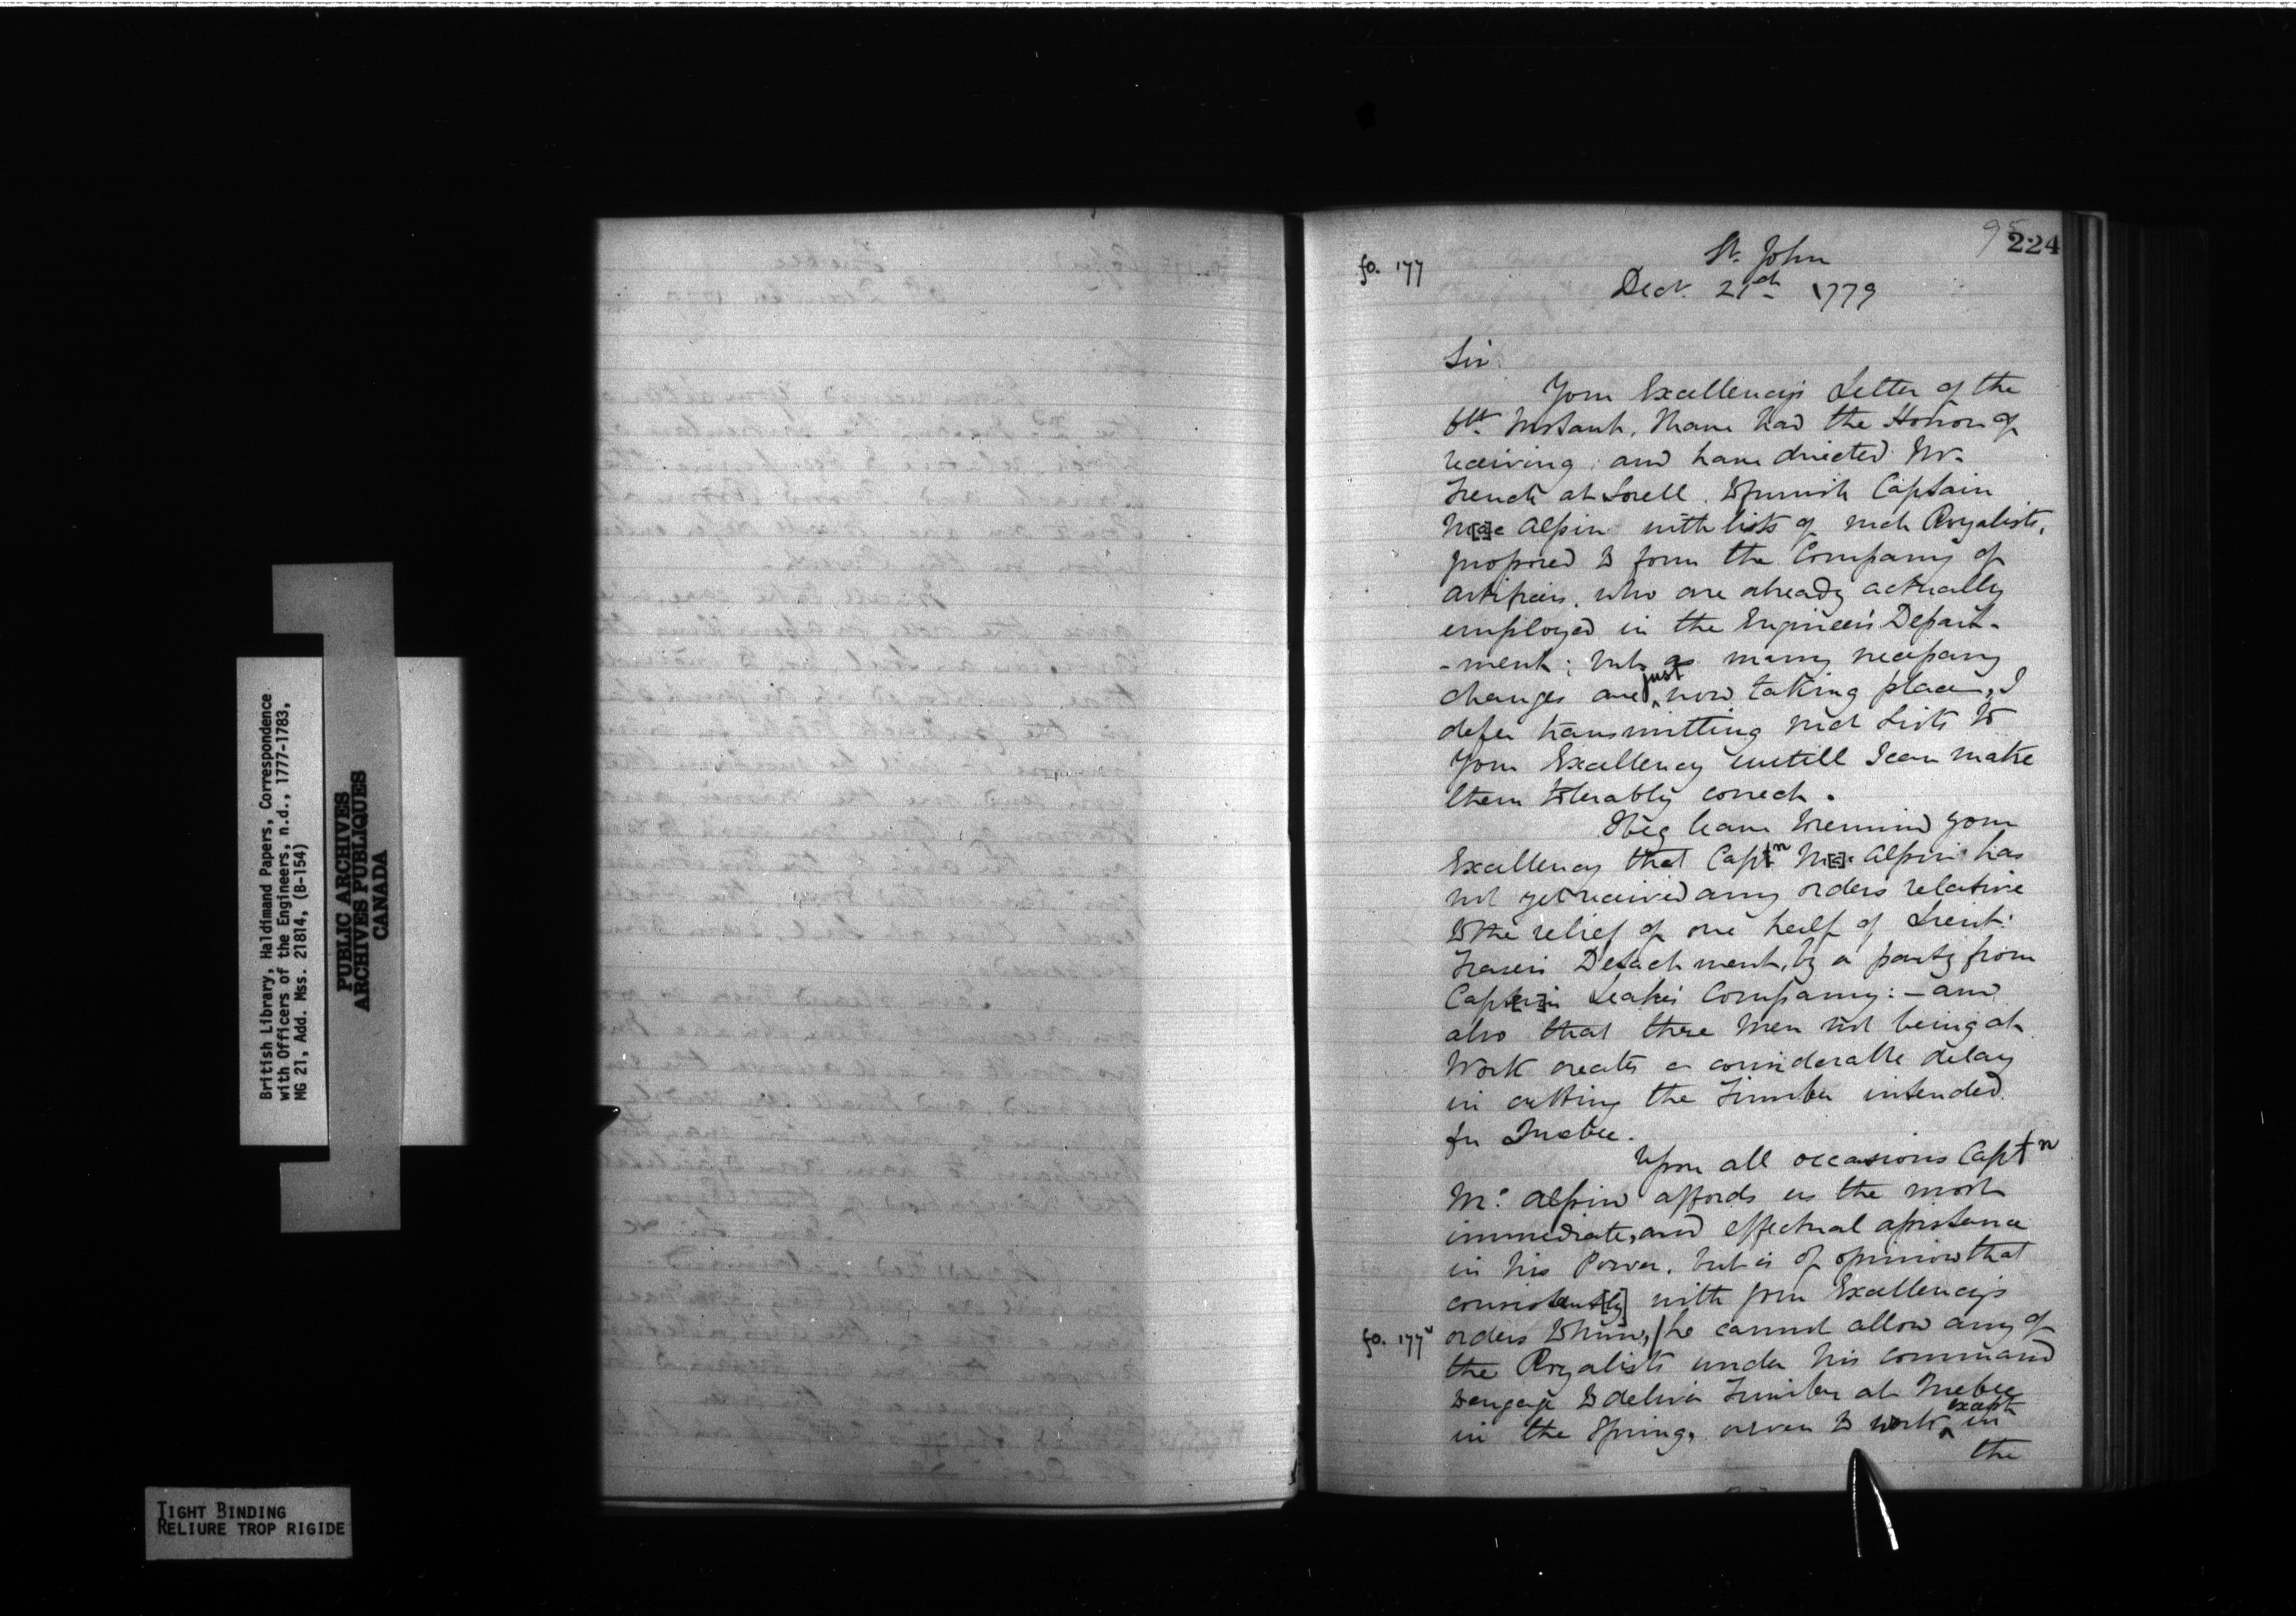 British Library, Haldimand Papers, Correspondence
with Officers of the Engineers, n.d., 1777-1783,
MG 21, Add. Mss. 21814, (B-154)
PUBLIC ARCHIVES
ARCHIVES PUBLIQUES
CANADA
TIGHT BINDING
RELIURE TROP RIGIDE
95
224
fo. 177
St. John
Decr. 21st 1779
Sir
Your Excellency's Letter of the
6th Instant, I have had the Honor of
receiving; and have directed Mr.
French at Sorell to furnish Captain
M[a]c Alpin with lists of such Royalists,
proposed to form the Company of
artificers, who are already actually
employed in the Engineer's Depart-
-ment; but as many necessary
changes are just now taking place, I
defer transmitting such Lists to
Your Excellency untill I can make
them tolerably correct.
I beg leave to remind your
Excellency that Captn M[c] Alpin has
not yet received any orders relative
to the relief of one half of Lieut.
Fraser's Detachment, by a party from
Capt[ai]n Leake's Company:- and
also that these Men not being at
Work creates a considerable delay
in cutting the Timber intended
for Quebec.
Upon all occasions Captn
Mc Alpin affords us the most
immediate, and effectual assistance
in his Power, but is of opinion that
consistent[ly] with your Excellency's
fo. 177v orders to him, / he cannot allow any of
the Royalists under his command
to engage to deliver Timber at Quebec
in the Spring, or even to work except in
the